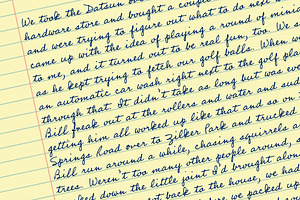 We took the Datsun
hardware store and bought a coupl
and were trying to figure out what to do next
came up with the idea of playing a round of mini
to me, and it turned out to be real fun, too. We
as he kept trying to fetch our golf balls. When w
an automatic car wash right next to the golf pla
through that. It didn't take as long but was eve
Bill freak out at the rollers and water and sud
getting him all worked up like that and so on
Springs Road over to Zilker Park and trucked
Bill run around a while, chasing squirrels a
trees. Weren't too many other people around, s
ked down the little joint I'd brought alon
got back to the house, we had
re we packed up